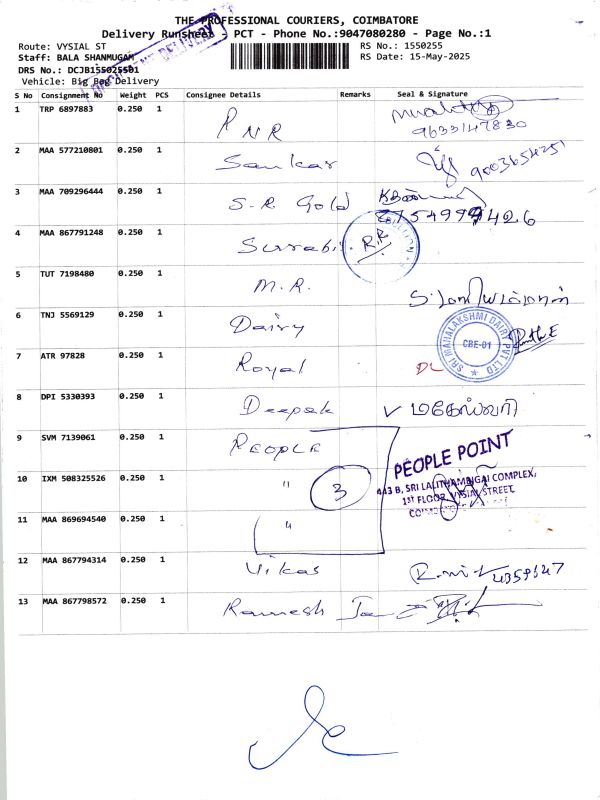 THE PROFESSIONAL COURIERS, COIMBATORE
Delivery Runsheet - PCT - Phone No.:9047080280 - Page No.:1
Route: VYSIAL ST
RS No.: 1550255
Staff: BALA SHANMUGAM
RS Date: 15-May-2025
DRS No.: DCJB155025501
Vehicle: Big Bag Delivery
S No Consignment No Weight PCS Consignee Details Remarks Seal & Signature
1 TRP 6897883 0.250 1 P N R
9633147830
2 MAA 577210801 0.250 1 Sankar 9003654251
3 MAA 709296444 0.250 1 S-R Gold
4 MAA 867791248 0.250 1 R.R
5 TUT 7198480 0.250 1 M.R.
6 TNJ 5569129 0.250 1 Dairy
SRI MAHALAKSHMI DAIRY PVT LTD
CBE-01
7 ATR 97828 0.250 1 Royal DL
8 DPI 5330393 0.250 1 Deepak மகேஸ்வரி
9 SVM 7139061 0.250 1 PEOPLE
PEOPLE POINT
10 IXM 508325526 0.250 1 " 3
443 B, SRI LALITHAMBIGAI COMPLEX,
1ST FLOOR, VYSIAL STREET,
11 MAA 869694540 0.250 1 "
12 MAA 867794314 0.250 1 Vikas
13 MAA 867798572 0.250 1 Ramesh